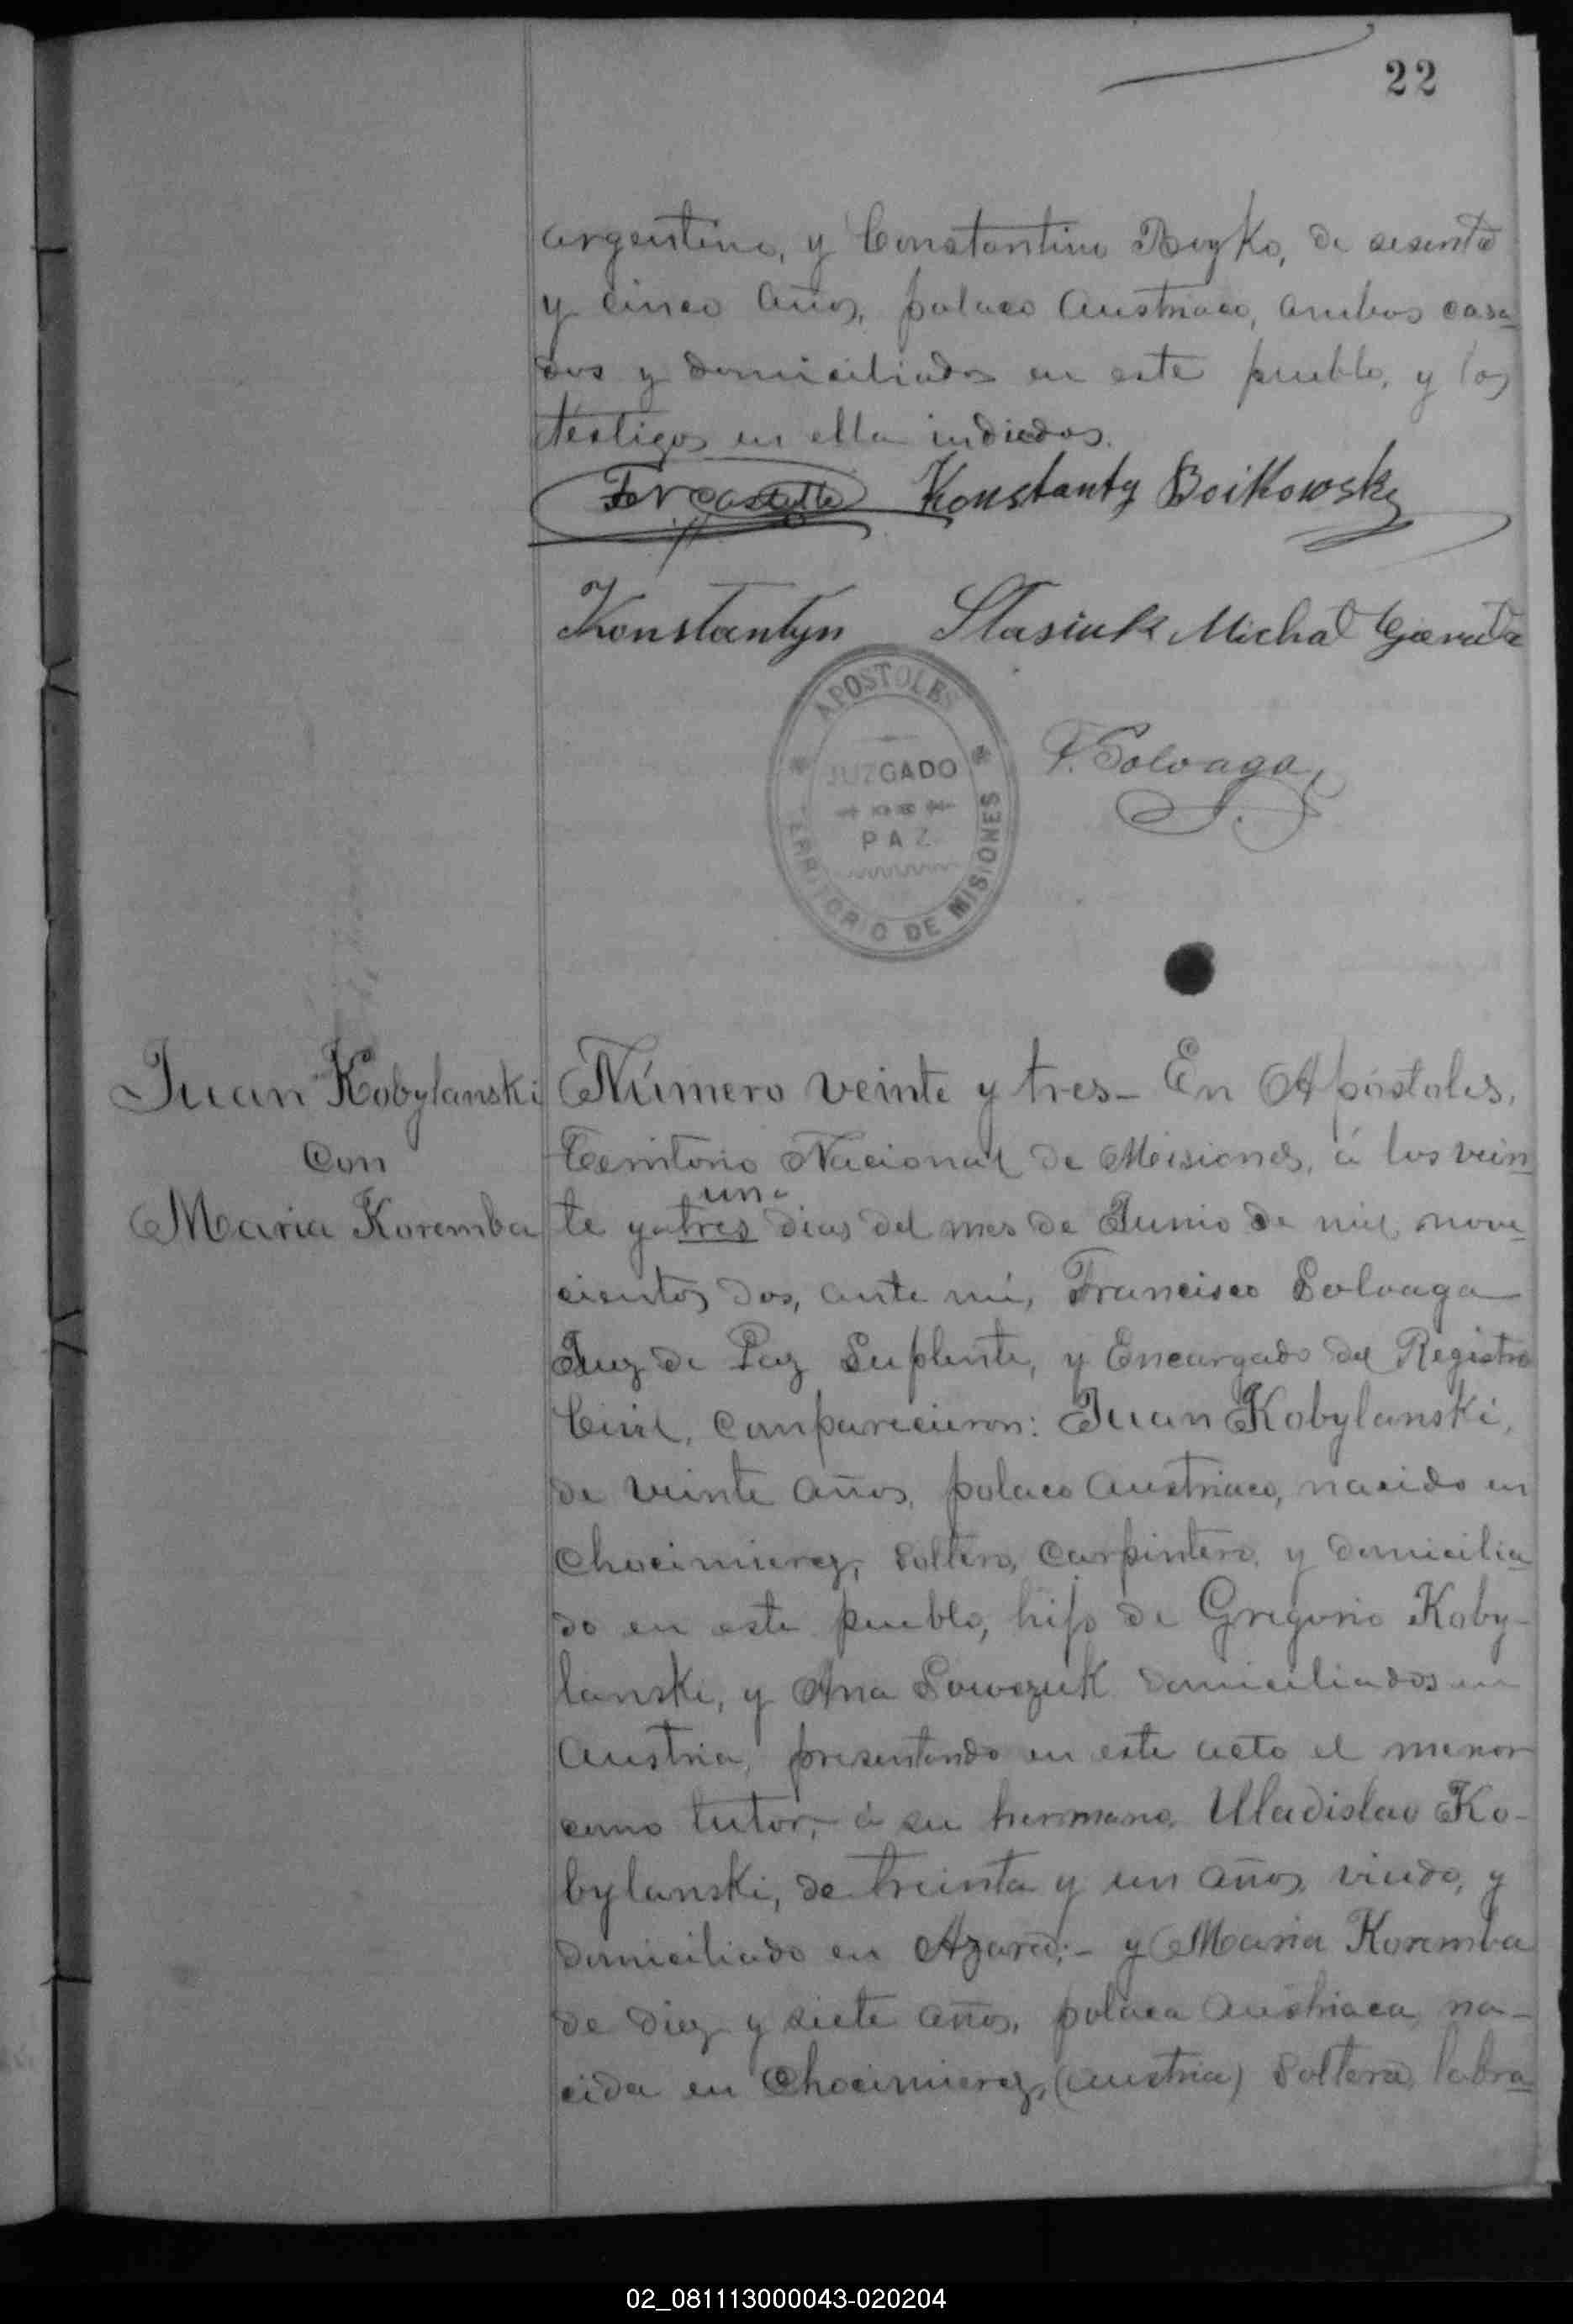 22
argentino, y Constantino Boyko, de sesenta
y cinco años, polaco austriaco, ambos casa-
dos y domiciliados en este pueblo, y los
testigos en ella indicados.
Konstanty Boikowski
Konstantyn Stasiuk Michał
APOSTOLES
JUZGADO
PAZ
TERRITORIO DE MISIONES
F. Solvaga
Juan Kobylanski
con
Maria Koremba
Número veinte y tres- En Apóstoles,
Territorio Nacional de Misiones, á los vein-
uno
te y tres dias del mes de Junio de mil nove-
cientos dos, ante mi, Francisco Solvaga
Juez de Paz Suplente, y Encargado del Registro
Civil, comparecieron: Juan Kobylanski,
de veinte años, polaco austriaco, nacido en
Chocimierz, soltero, carpintero, y domicilia-
do en este pueblo, hijo de Gregorio Koby-
lanski, y Ana Sowczuk domiciliados en
Austria, presentando en este acto el menor
como tutor, á su hermano Uladislao Ko-
bylanski, de treinta y un años, viudo, y
domiciliado en Azara;- y Maria Koremba
de diez y siete años, polaca austriaca, na-
cida en Chocimierz, (Austria) soltera, labra-
02_081113000043-020204